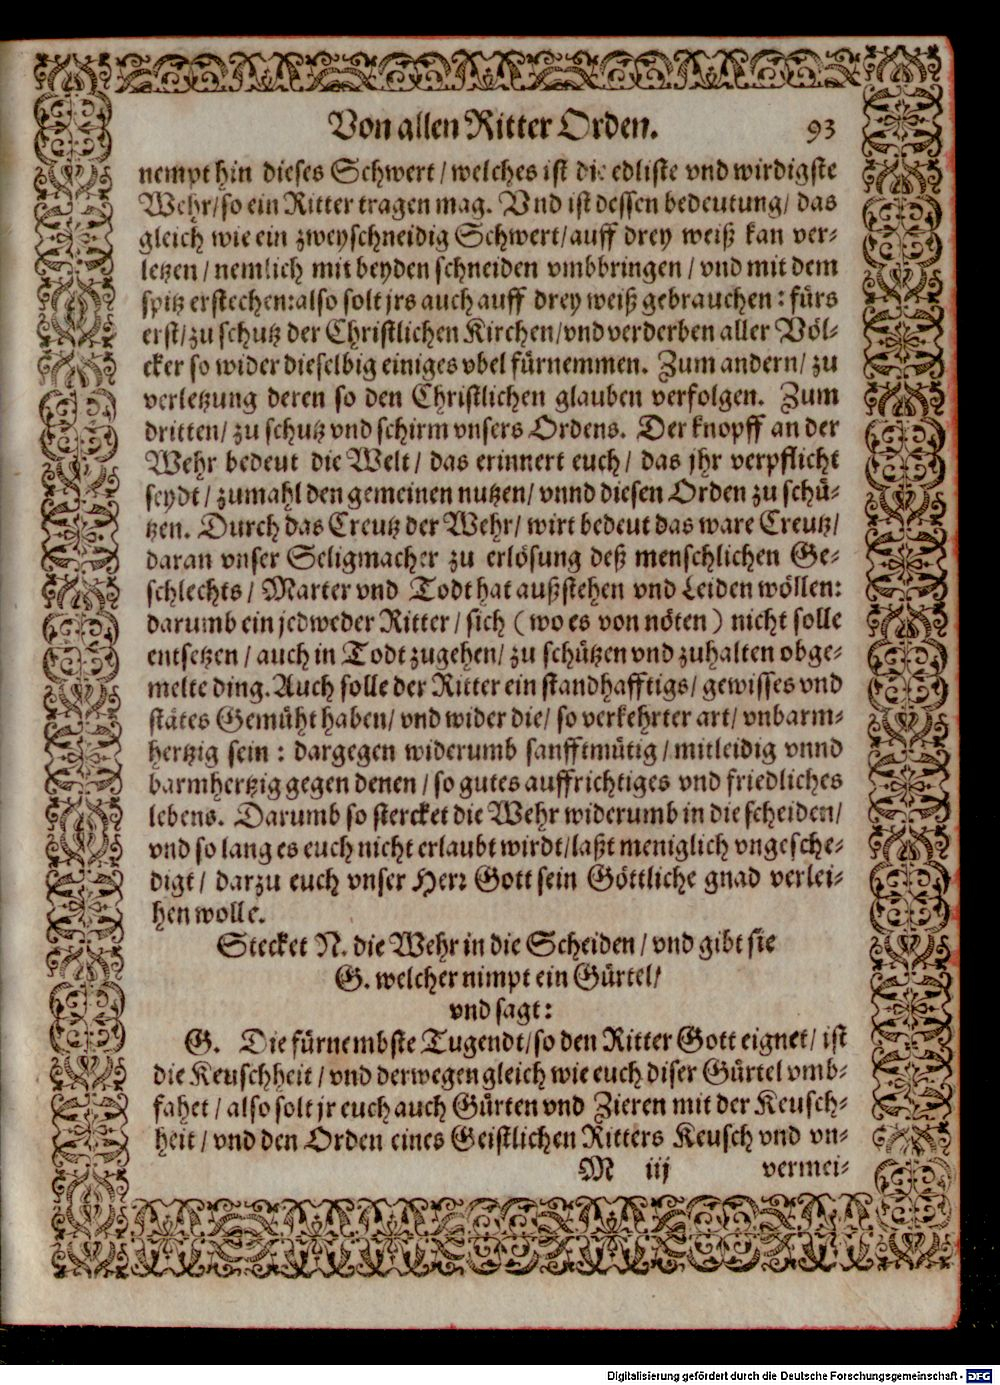 Von allen Ritter Orden. 93
nempt hin dieses Schwert / welches ist die edliste vnd wirdigste
Wehr / so ein Ritter tragen mag. Vnd ist dessen bedeutung / das
gleich wie ein zweyschneidig Schwert / auff drey weiß kan ver-
letzen / nemlich mit beyden schneiden vmbbringen / vnd mit dem
spitz erstechen: also solt jrs auch auff drey weiß gebrauchen: fürs
erst / zu schutz der Christlichen Kirchen / vnd verderben aller Völ-
cker so wider dieselbig einiges vbel fürnemmen. Zum andern / zu
verletzung deren so den Christlichen glauben verfolgen. Zum
dritten / zu schutz vnd schirm vnsers Ordens. Der knopff an der
Wehr bedeut die Welt / das erinnert euch / das jhr verpflicht
seydt / zumahl den gemeinen nutzen / vnnd diesen Orden zu schü-
tzen. Durch das Creutz der Wehr / wirt bedeut das ware Creutz /
daran vnser Seligmacher zu erlösung deß menschlichen Ge-
schlechts / Marter vnd Todt hat außstehen vnd Leiden wöllen:
darumb ein jedweder Ritter / sich ( wo es von nöten ) nicht solle
entsetzen / auch in Todt zugehen / zu schützen vnd zuhalten obge-
melte ding. Auch solle der Ritter ein standhafftigs / gewisses vnd
stätes Gemüht haben / vnd wider die / so verkehrter art / vnbarm-
hertzig sein : dargegen widerumb sanfftmütig / mitleidig vnnd
barmhertzig gegen denen / so gutes auffrichtiges vnd friedliches
lebens. Darumb so stercket die Wehr widerumb in die scheiden /
vnd so lang es euch nicht erlaubt wirdt / laßt meniglich vngesche-
digt / darzu euch vnser Herr Gott sein Göttliche gnad verlei-
hen wolle.
Stecket N. die Wehr in die Scheiden / vnd gibt sie
G. welcher nimpt ein Gürtel /
vnd sagt:
G. Die fürnembste Tugendt / so den Ritter Gott eignet / ist
die Keuschheit / vnd derwegen gleich wie euch diser Gürtel vmb-
fahet / also solt jr euch auch Gürten vnd Zieren mit der Keusch-
heit / vnd den Orden eines Geistlichen Ritters Keusch vnd vn-
M iij vermei-
Digitalisierung gefördert durch die Deutsche Forschungsgemeinschaft - DFG